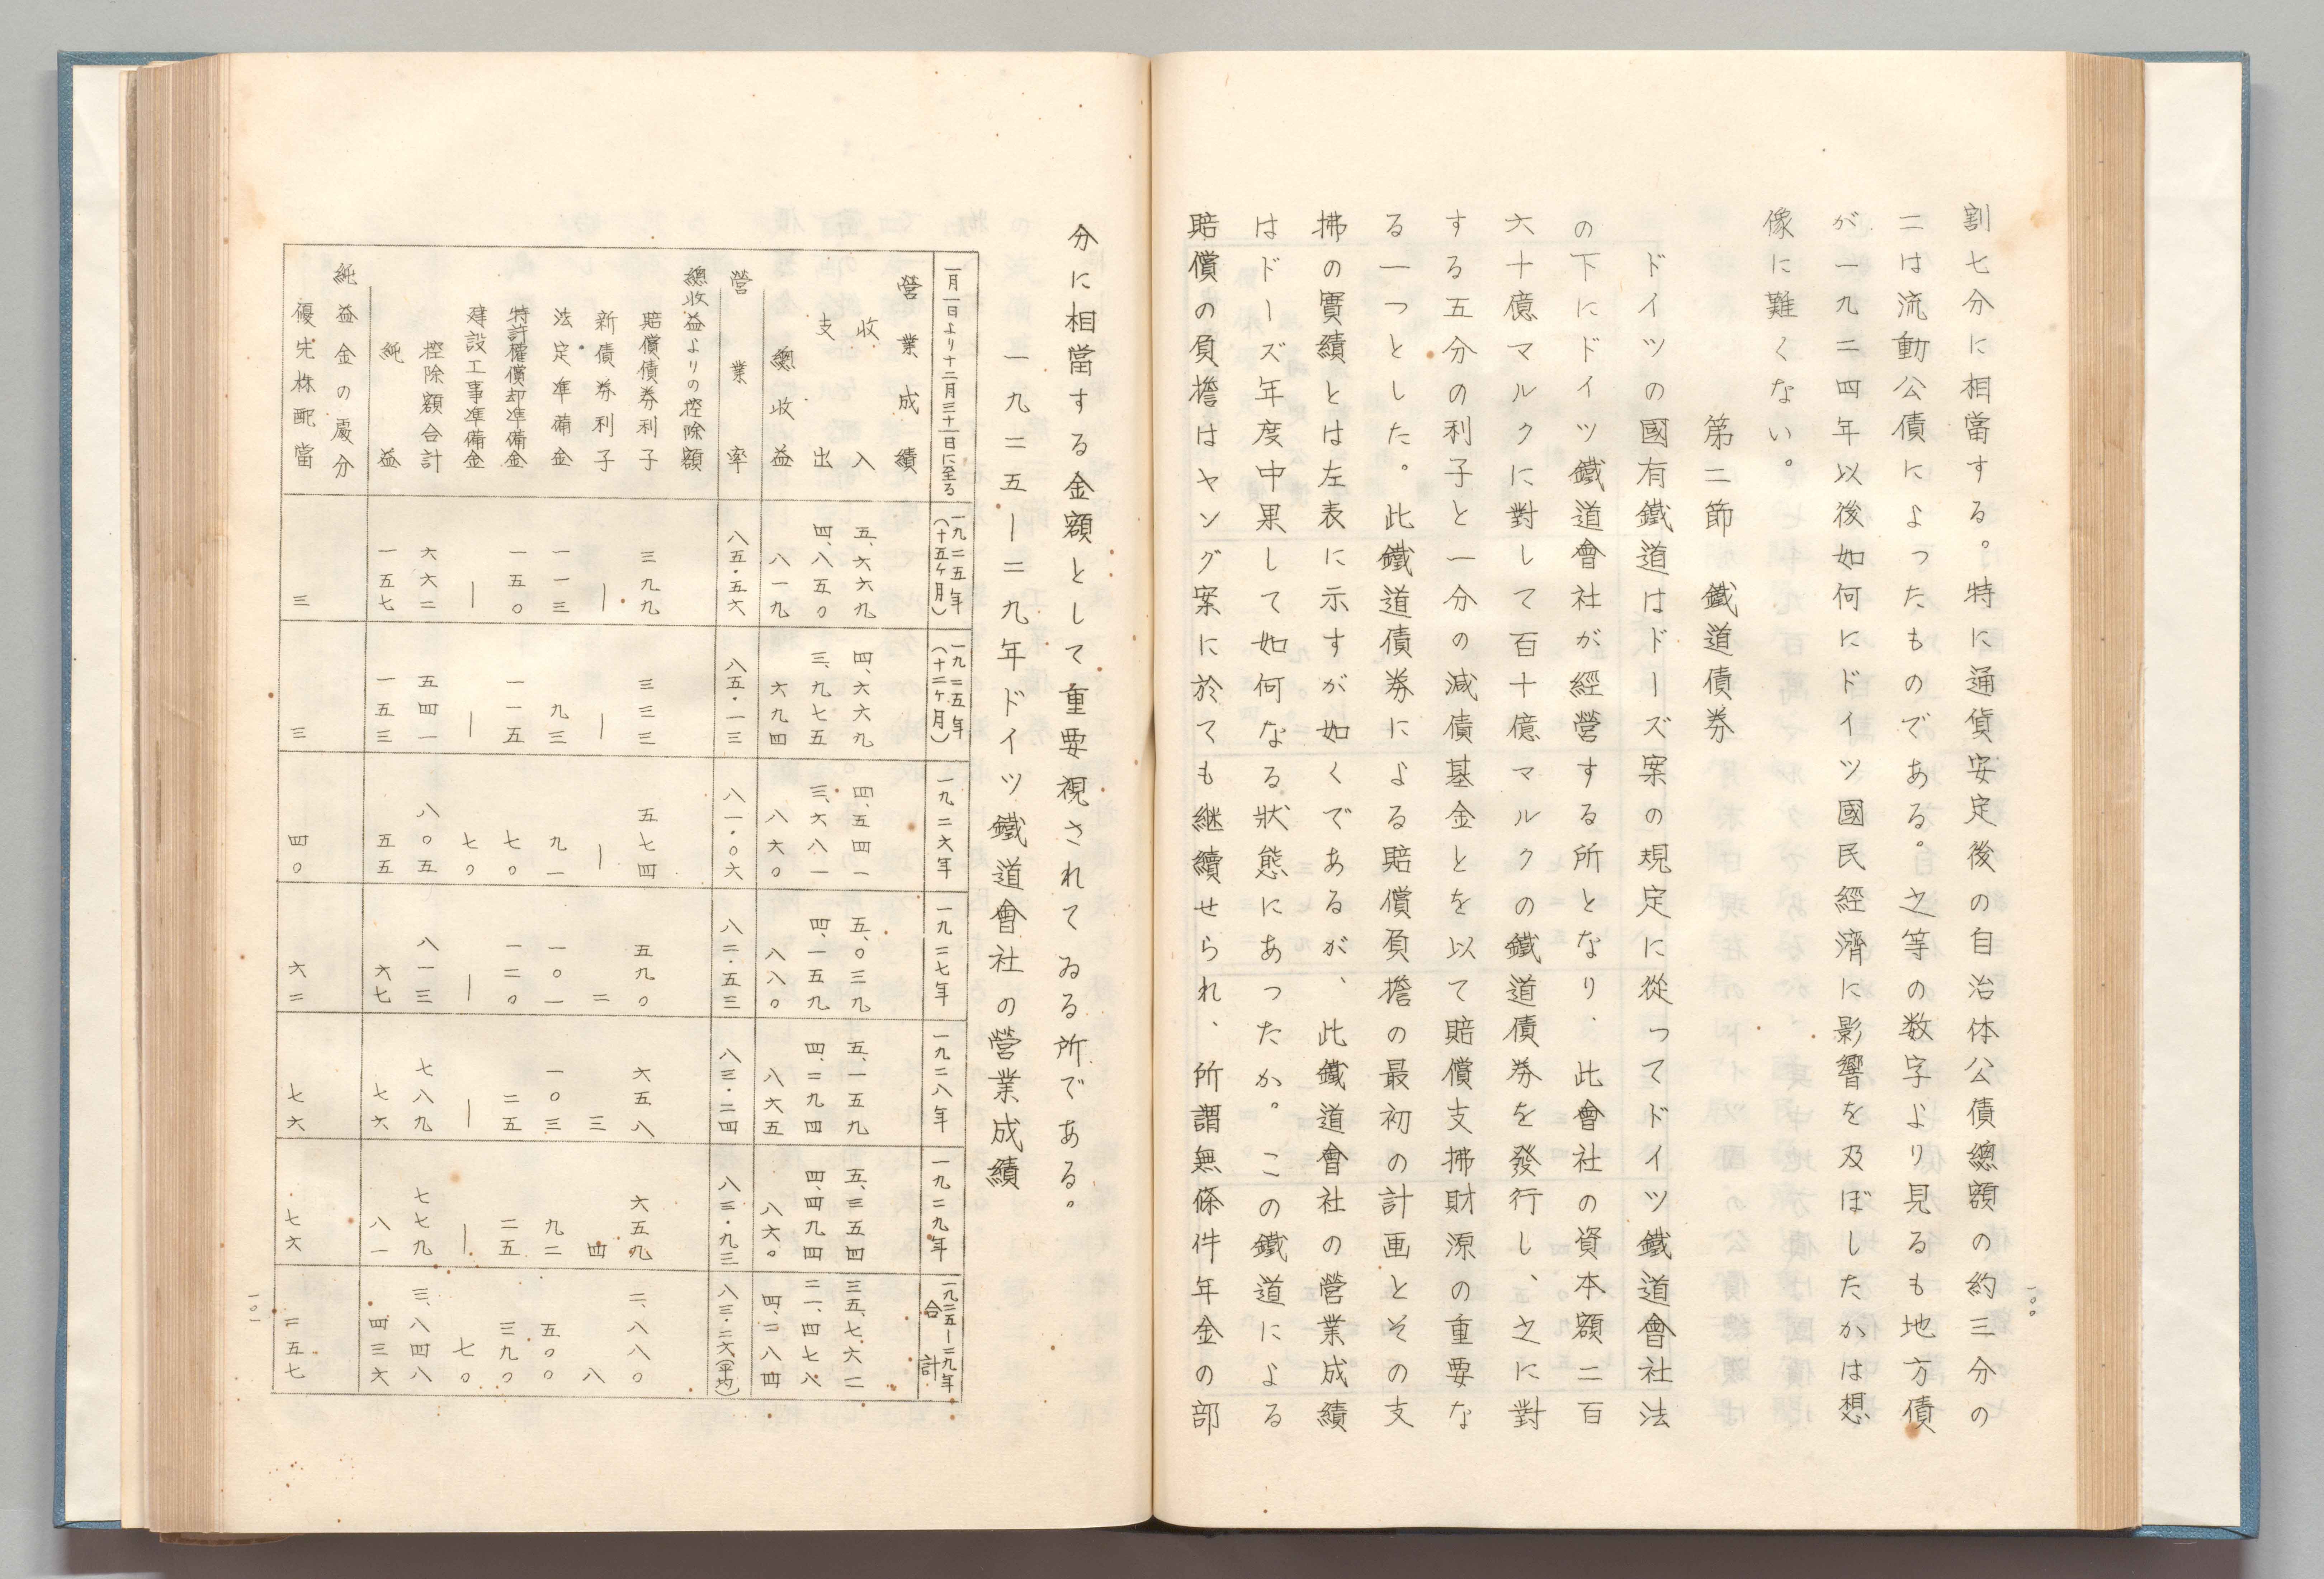 一〇〇
割七分に相當する。特に通貨安定後の自治体公債總額の約三分の
二は流動公債によったものである。之等の数字より見るも地方債
が一九二四年以後如何にドイツ國民經濟に影響を及ぼしたかは想
像に難くない。
第二節　鐵道債券
ドイツの國有鐵道はドーズ案の規定に從ってドイツ鐵道會社法
の下にドイツ鐵道會社が經營する所となり、此會社の資本額二百
六十億マルクに對して百十億マルクの鐵道債券を發行し、之に對
する五分の利子と一分の減債基金とを以て賠償支拂財源の重要な
る一つとした。此鐵道債券による賠償負擔の最初の計画とその支
拂の實績とは左表に示すが如くであるが、此鐵道會社の營業成績
はドーズ年度中果して如何なる狀態にあったか。この鐵道による
賠償の負擔はヤング案に於ても継續せられ、所謂無條件年金の部
分に相當する金額として重要視されてゐる所である。
一九二五ー二九年ドイツ鐵道會社の營業成績
一月一日より十二月三十一日に至る　一九二五年（十五ヶ月）　一九二五年（十二ヶ月）　一九二六年　一九二七年　一九二八年　一九二九年　一九二五ー二九年合計
營業成績
收入　五、六六九　四、六六九　四、五四一　五、〇三九　五、一五九　五、三五四　二五、七六二
支出　四、八五〇　三、九七五　三、六八一　四、一五九　四、二九四　四、四九四　二一、四七八
總收益　八一九　六九四　八六〇　八八〇　八六五　八六〇　四、二八四
營業率　八五・五六　八五・一三　八一・〇六　八二・五三　八三・二四　八三・九三　八三・二六（平均）
總收益よりの控除額
賠償債券利子　三九九　三三三　五七四　五九〇　六五八　六五九　二、八八〇
新債券利子　―　―　―　二　三　四　八
法定準備金　一一三　九三　九一　一〇一　一〇三　九二　五〇〇
特許權償却準備金　一五〇　一一五　七〇　一二〇　二五　二五　三九〇
建設工事準備金　―　―　七〇　―　―　―　七〇
控除額合計　六六二　五四一　八〇五　八一三　七八九　七七九　三、八四八
純益　一五七　一五三　五五　六七　七六　八一　四三六
純益金の處分
優先株配當　三　三　四〇　六二　七六　七六　二五七
一〇一